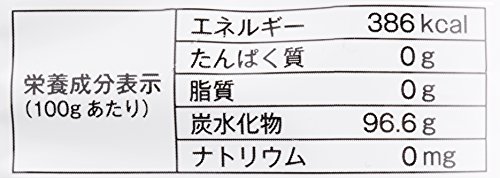 栄養成分表示
(100gあたり)
エネルギー 386kcal
たんぱく質 0g
脂質 0g
炭水化物 96.6g
ナトリウム 0mg